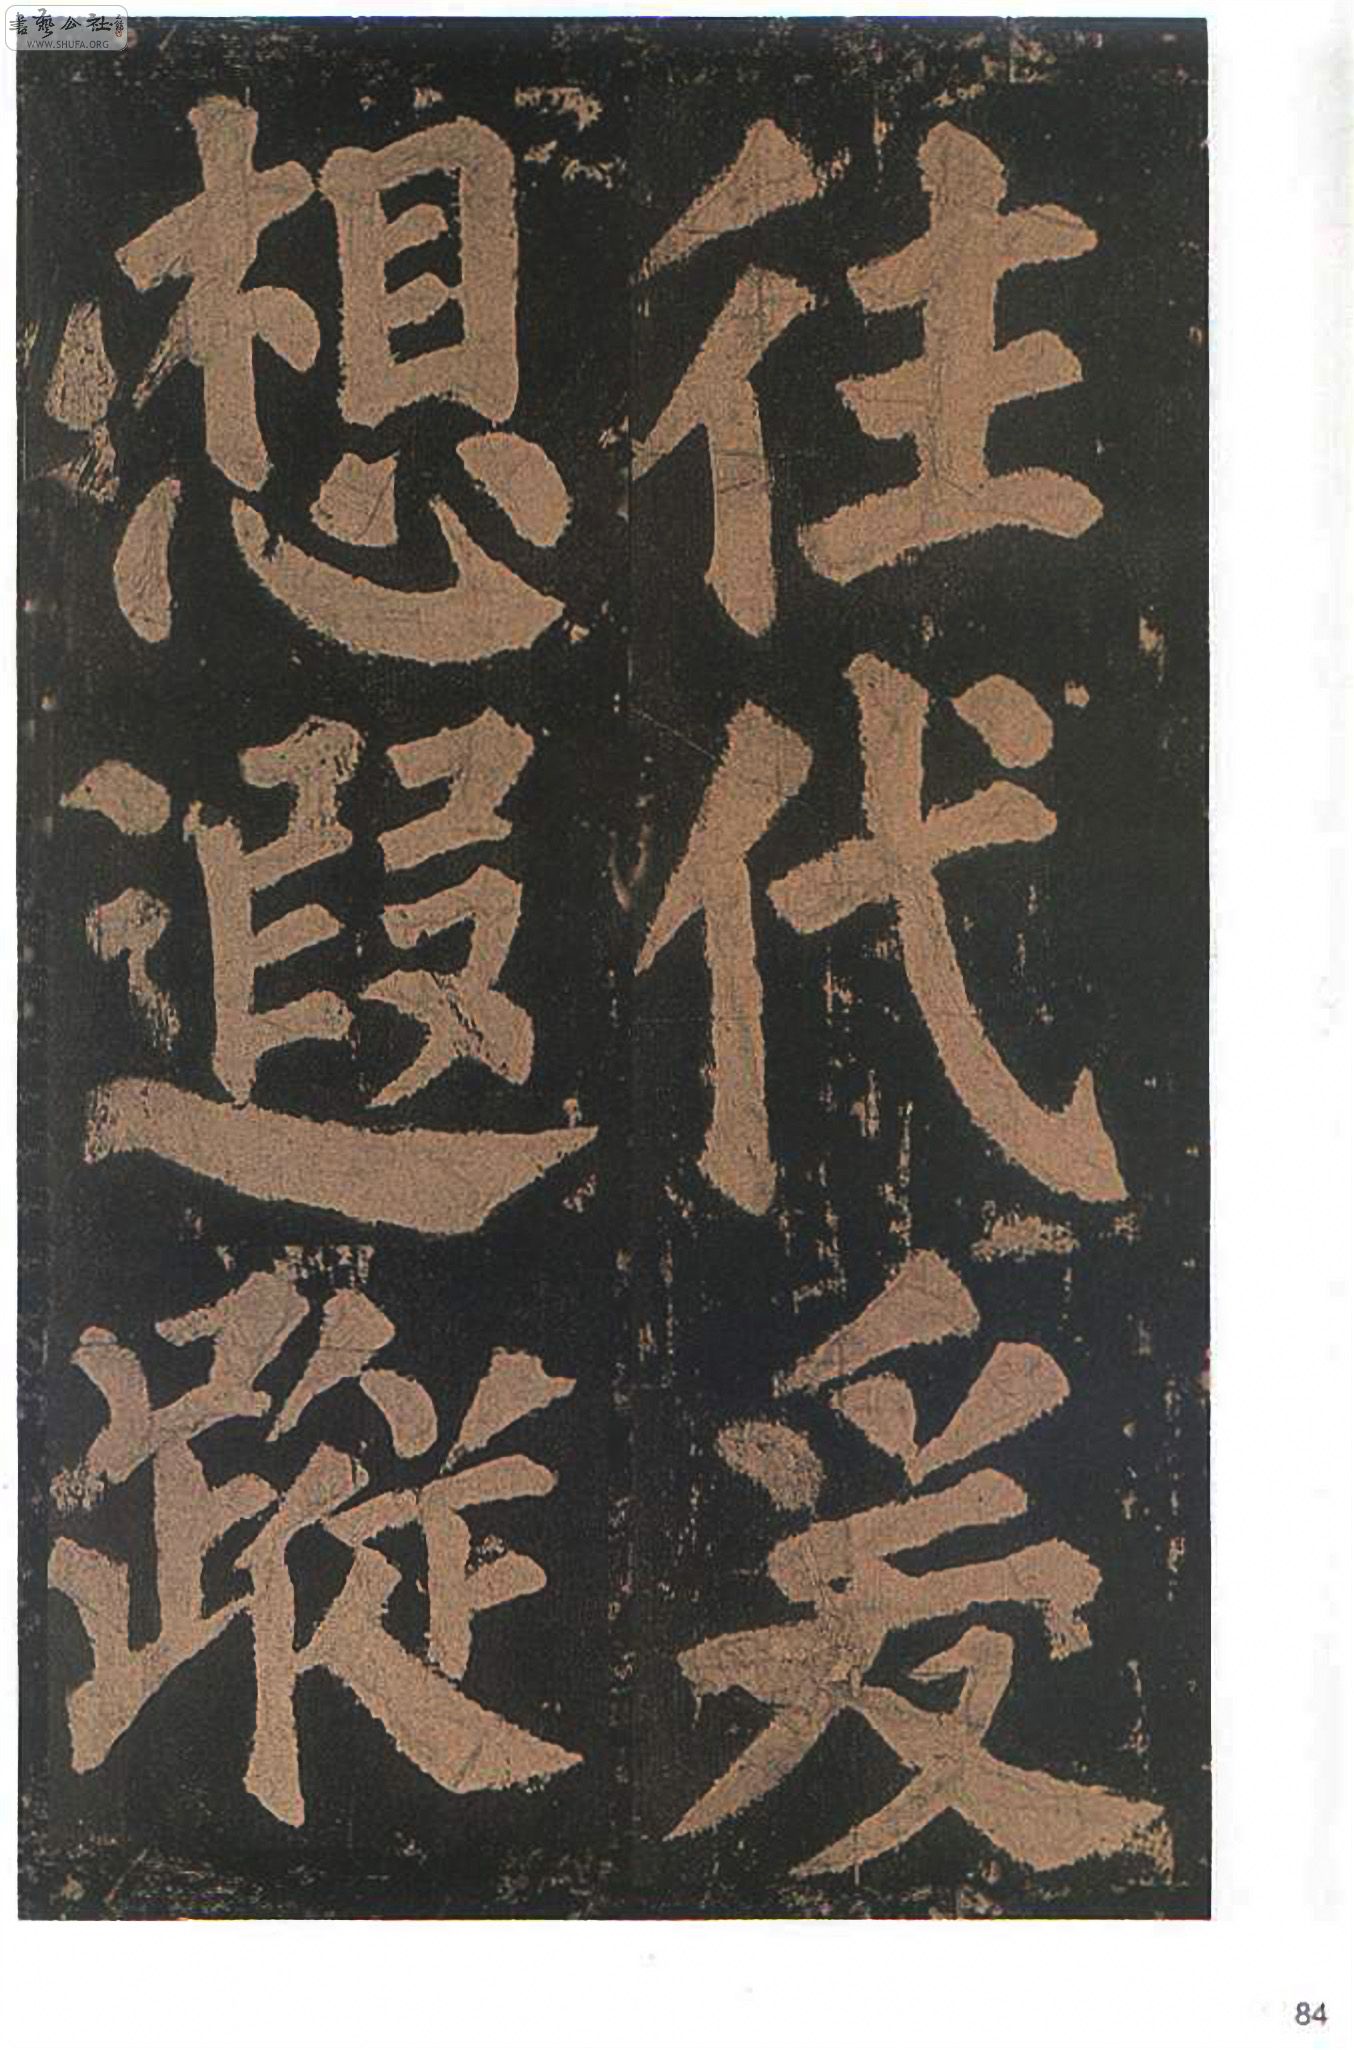 書藝公社
WWW.SHUFA.ORG
往代爰
想遐蹤
84